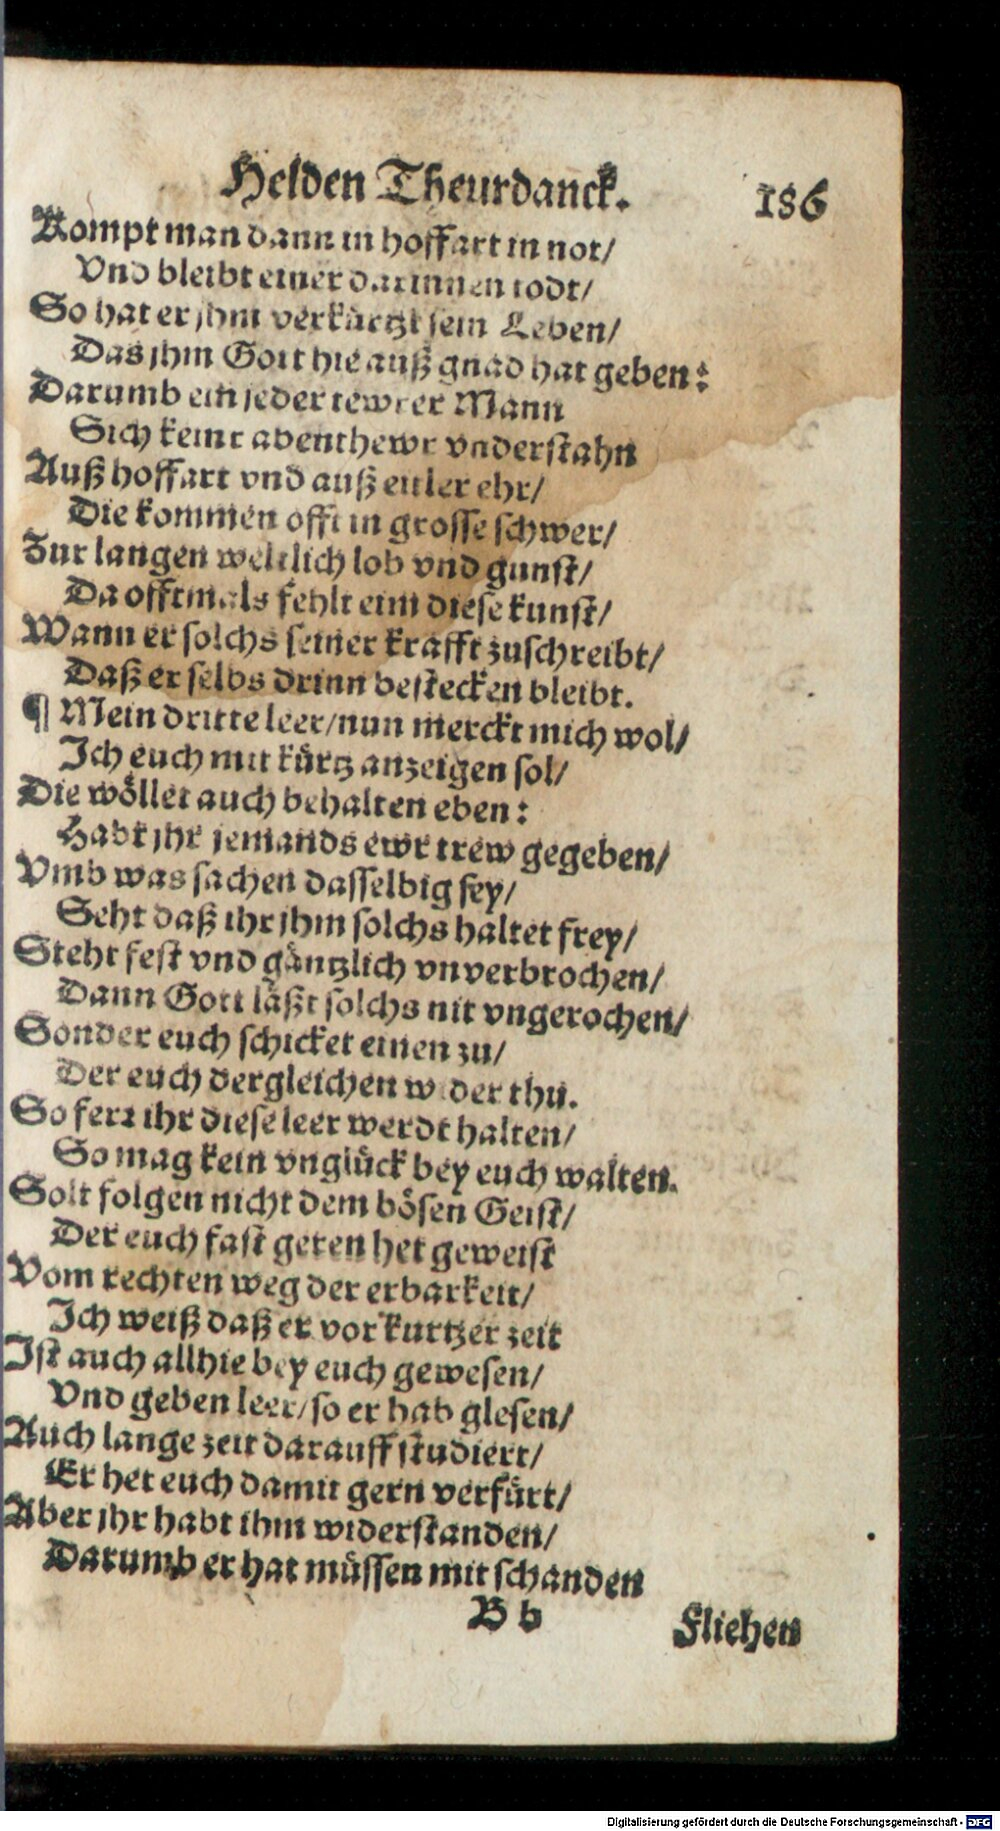 Helden Theurdanck. 186
Kompt man dann in hoffart in not/
Vnd bleibt einer darinnen todt/
So hat er jhm verkürtzt sein Leben/
Das jhm Gott hie auß gnad hat geben:
Darumb ein jeder tewrer Mann
Sich keinr abenthewr vnderstahn
Auß hoffart vnd auß eitler ehr/
Die kommen offt in grosse schwer/
Zur langen weltlich lob vnd gunst/
Da offtmals fehlt eim diese kunst/
Wann er solchs seiner krafft zuschreibt/
Daß er selbs drinn bestecken bleibt.
¶ Mein dritte leer/nun merckt mich wol/
Ich euch mit kürtz anzeigen sol/
Die wöllet auch behalten eben:
Habt jhr jemands ewr trew gegeben/
Vmb was sachen dasselbig sey/
Seht daß ihr jhm solchs haltet frey/
Steht fest vnd gäntzlich vnverbrochen/
Dann Gott läßt solchs nit vngerochen/
Sonder euch schicket einen zu/
Der euch dergleichen wider thu.
So ferr ihr diese leer werdt halten/
So mag kein vnglück bey euch walten.
Solt folgen nicht dem bösen Geist/
Der euch fast geren het geweist
Vom rechten weg der erbarkeit/
Ich weiß daß er vor kurtzer zeit
Ist auch allhie bey euch gewesen/
Vnd geben leer/so er hab glesen/
Auch lange zeit darauff studiert/
Er het euch damit gern verfürt/
Aber jhr habt ihm widerstanden/
Darumb er hat müssen mit schanden
B b Fliehen
Digitalisierung gefördert durch die Deutsche Forschungsgemeinschaft - DFG